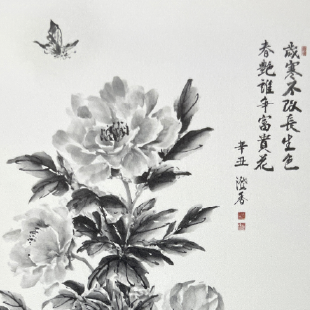 歲寒不改長生色
春艷誰爭富貴花
辛丑
澄春